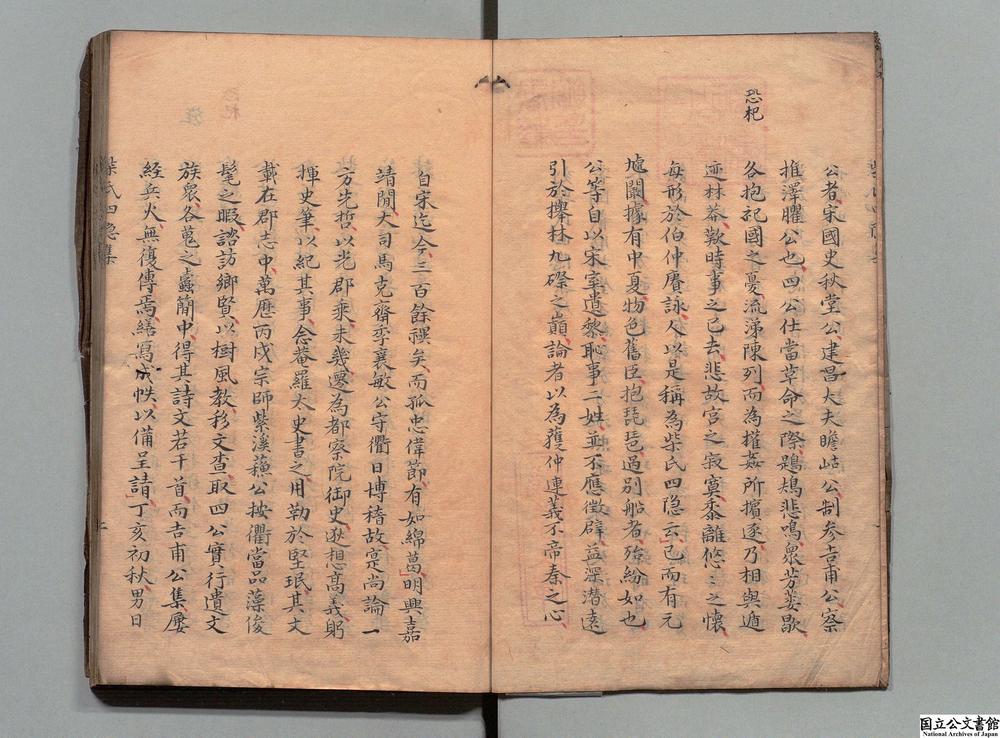 恐杞
公者宋國史秋堂公建昌大夫瞻岵公制參吉甫公察
推澤臞公也四公仕當草命之際鶗鴂悲鳴衆芳萎歇
各抱𣏌國之憂流涕陳列而為權姦所擯逐乃相與遁
迹林莽歎時事之已去悲故宮之寂寞黍離悠〻之懷
每形於伯仲賡詠人以是稱為柴氏四隐云已而有元
墟闢據有中夏物色舊臣抱琵琶過別船者殆紛如也
公等自以宋室遺黎恥事二姓並不應徵辟益深潛遠
引於攑林九磜之巔論者以為䕶仲連義不帝秦之心
自宋迄今三百餘禩矣而孤忠偉節有如綿葛明興嘉
靖閒大司馬克齋李襄敏公守衢日博稽故寔尚論一
方先哲以光郡乘未幾遷為都察院御史亟想高義躬
揮史筆以紀其事念菴羅太史書之用勒於堅珉其文
載在郡志中萬歷丙戌宗師紫溪蘓公按衢當品藻俊
髦之暇諮訪鄉賢以樹風教移文查取四公實行遺文
族衆各蒐之蠹簡中得其詩文若干首而吉甫公集屢
經兵火無復傳焉繕寫成帙以備呈請丁亥初秋男日
柴氏四隐集
国立公文書館
National Archives of Japan